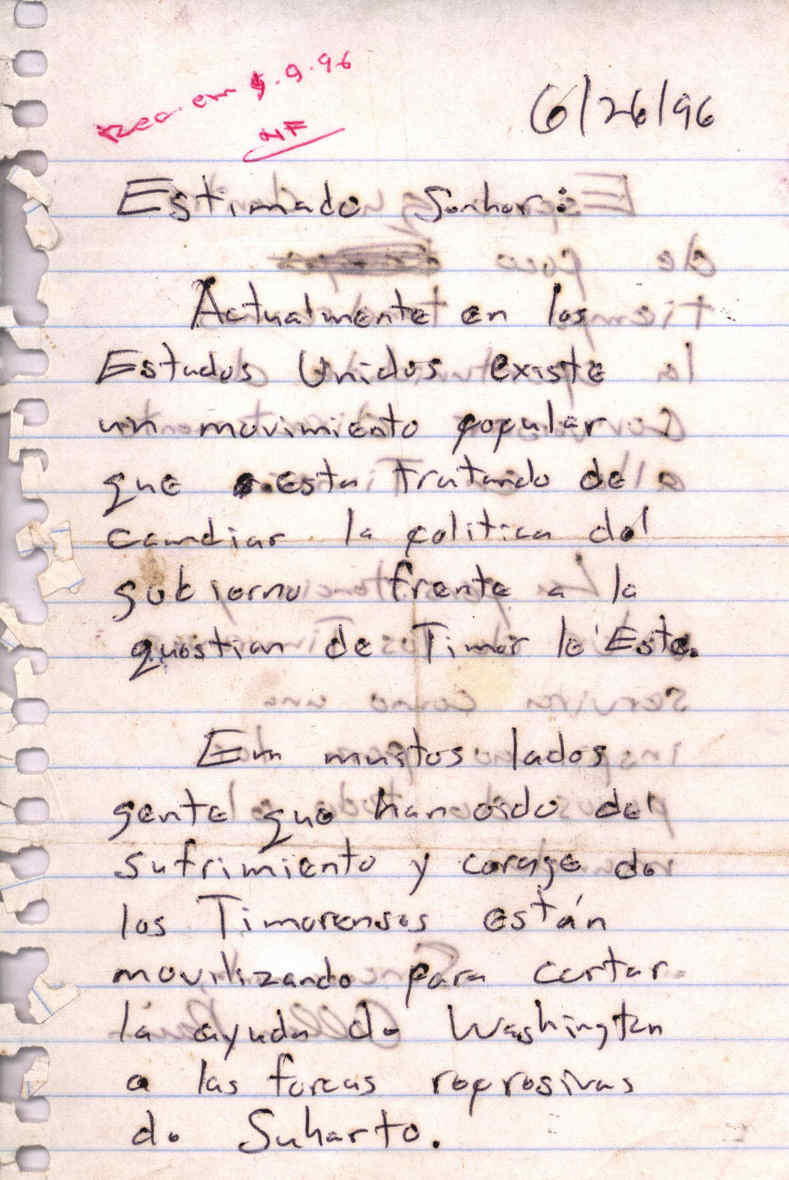 Rec. em 9.9.96
NF
6/26/96
Estimado Sonhor:
Actualmente en los
Estados Unidos existe
un movimiento popular
que esta tratando de
camdiar la politica del
gobierno frente a la
questian de Timor le Este.
En muitos lados
gente que han oido del
sufrimiento y corage de
los Timorenses están
movilizando para cortar
la ayuda de Washington
a las forcas reprosivas
de Suharto.